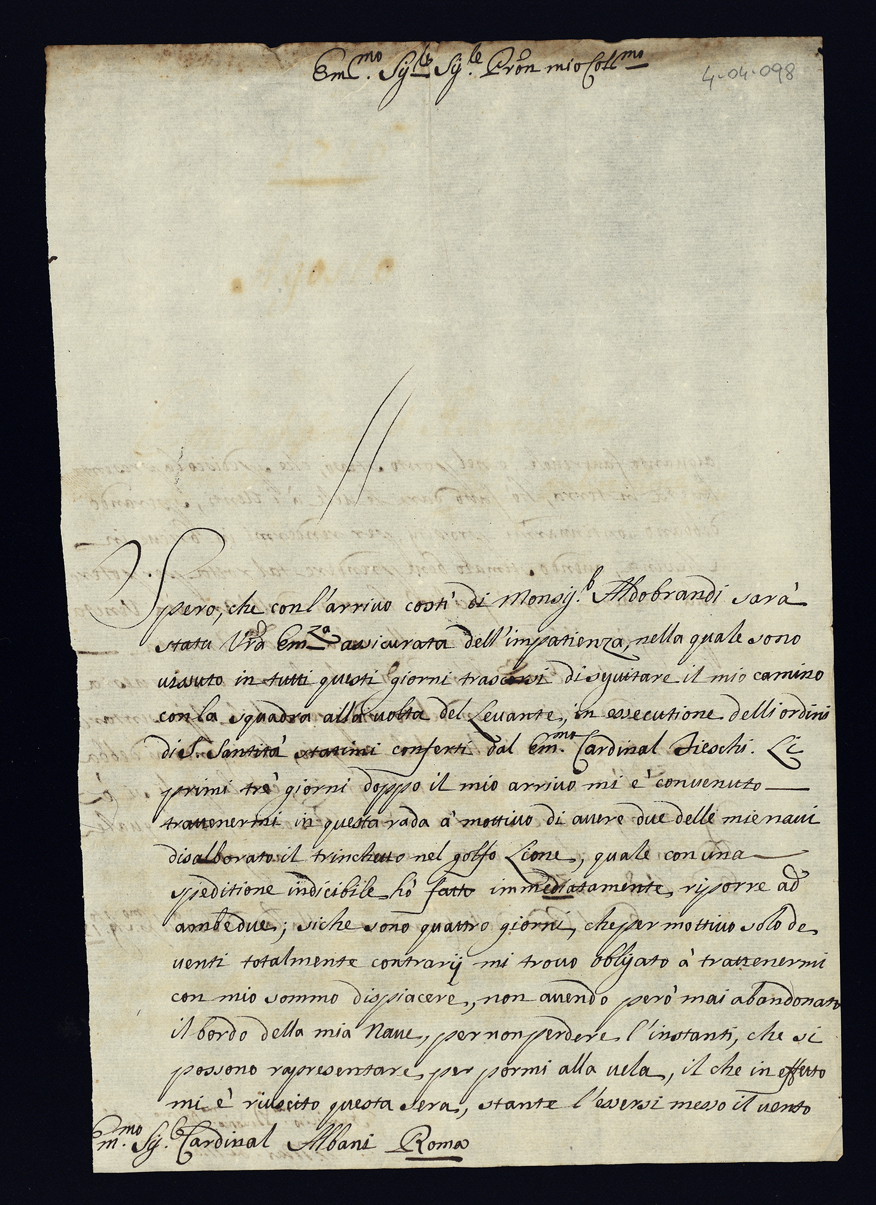 Em.mo Sig.re Sig.re Pron mio Coll.mo
4-04-098
Spero, che con l'arrivo costì di Monsig.r Aldobrandi sarà
stata Vrã Em.za assicurata dell'impatienza, nella quale sono
vissuto in tutti questi giorni trascorsi di seguitare il mio camino
con la squadra alla volta del Levante, in essecutione delli ordini
di S. Santità statimi conferti dal Em.mo Cardinal Fieschi. Li
primi trè giorni doppo il mio arrivo mi è convenuto
trattenermi in questa rada à mottivo di avere due delle mie navi
disalborato il trinchetto nel golfo Lione, quale con una
speditione indicibile hò fatto immediatamente riporre ad
ambedue; siche sono quattro giorni, che per mottivo solo de
venti totalmente contrarij mi trovo obligato à trattenermi
con mio sommo dispiacere, non avendo però mai abandonato
il bordo della mia Nave, per non perdere l'instanti, che si
possono rapresentare per pormi alla vela, il che in effetto
mi è riuscito questa sera, stante l'essersi messo il vento
Em.mo Sig.r Cardinal Albani Roma